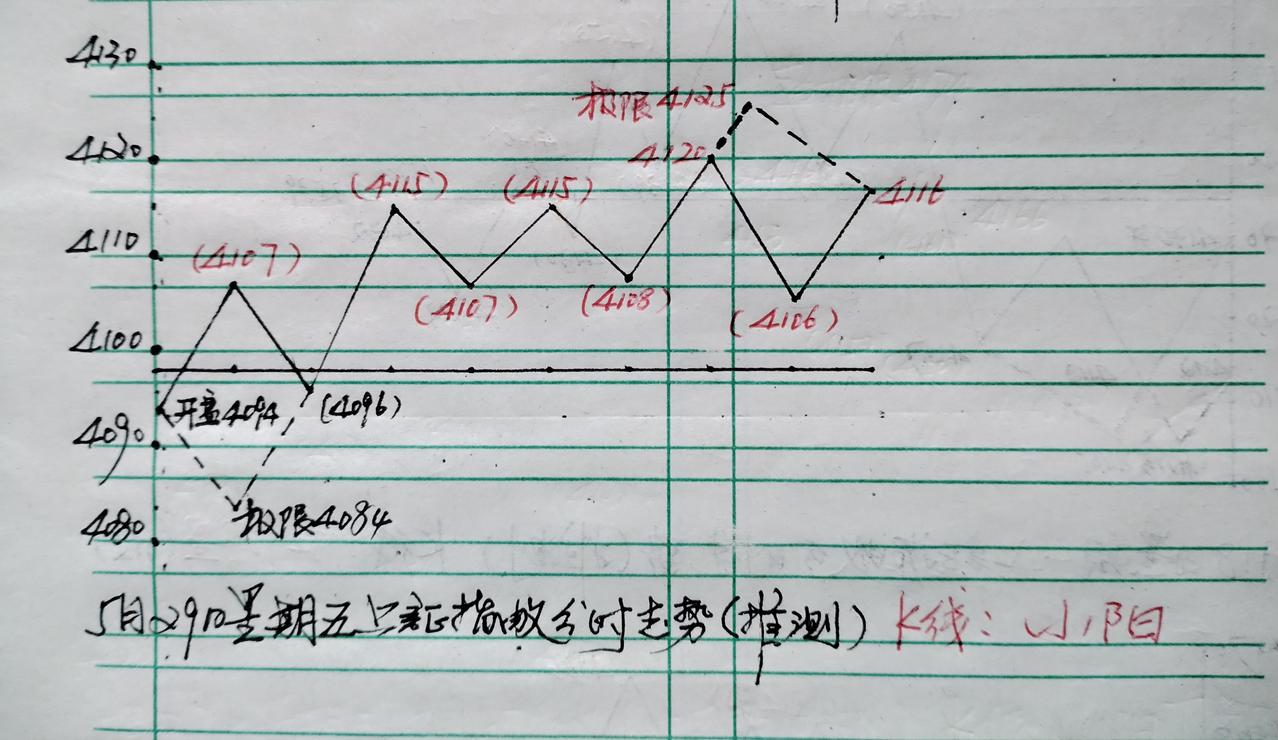 4130
极限4125
4120
4120
(4115)
(4115)
4116
4110
(4107)
(4107)
(4108)
(4106)
4100
开盘4094
(4096)
4090
极限4084
4080
5月29日星期五上证指数分时走势(推测) K线：小阳